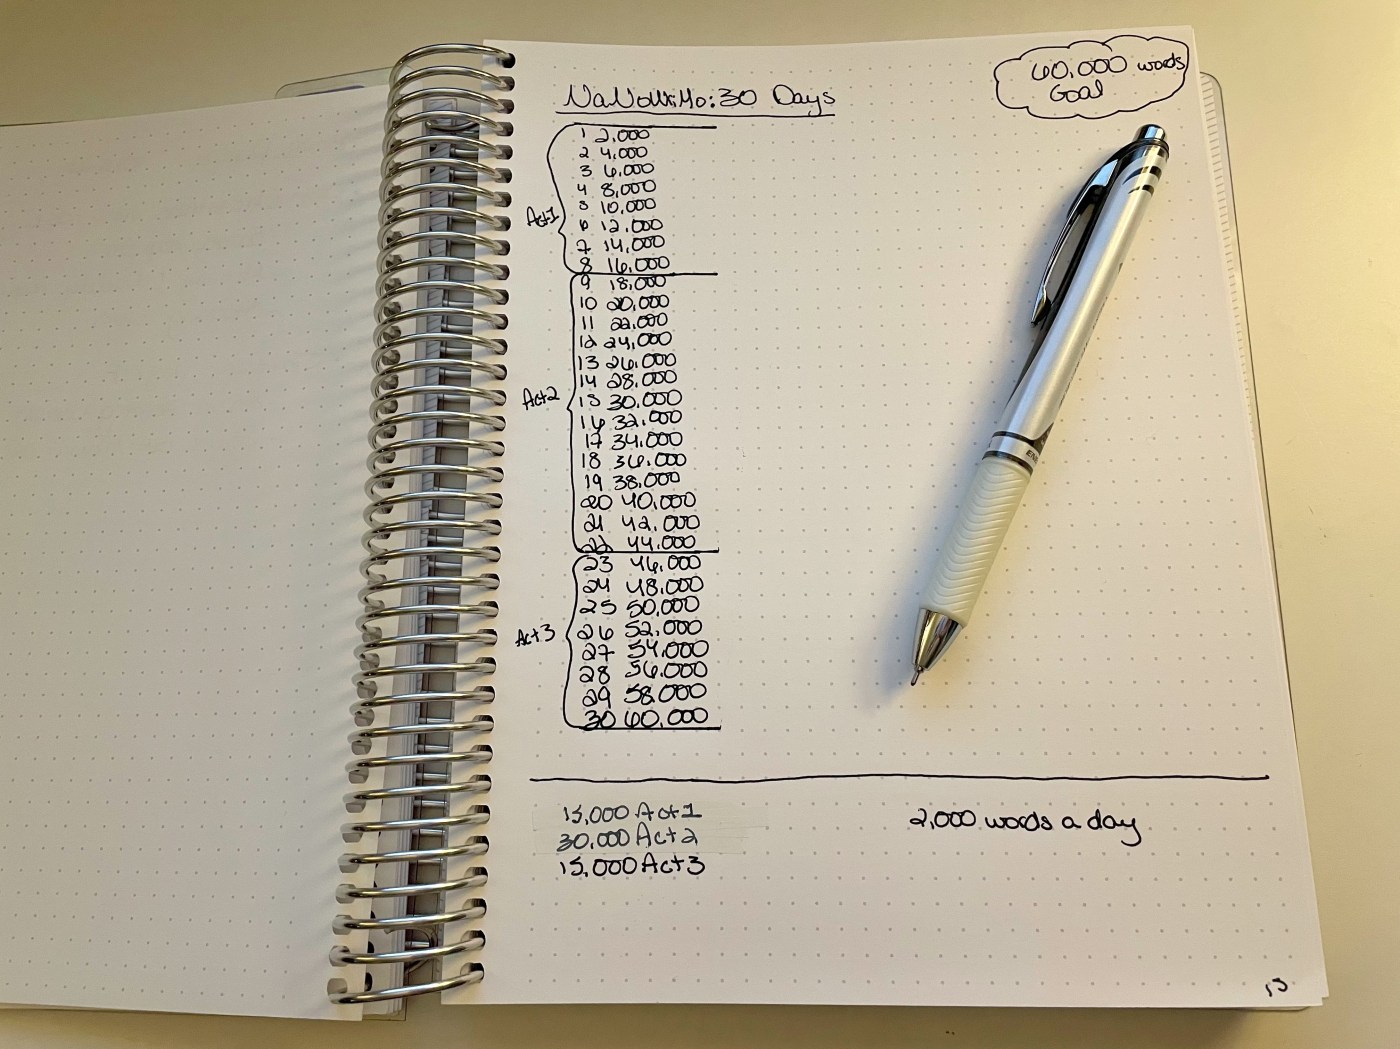 NaNoWriMo: 30 Days
60,000 words
Goal
1 2,000
2 4,000
3 6,000
4 8,000
5 10,000
6 12,000
7 14,000
8 16,000
Act 1
9 18,000
10 20,000
11 22,000
12 24,000
13 26,000
14 28,000
15 30,000
16 32,000
17 34,000
18 36,000
19 38,000
20 40,000
21 42,000
22 44,000
Act 2
23 46,000
24 48,000
25 50,000
26 52,000
27 54,000
28 56,000
29 58,000
30 60,000
Act 3
15,000 Act 1
30,000 Act 2
15,000 Act 3
2,000 words a day